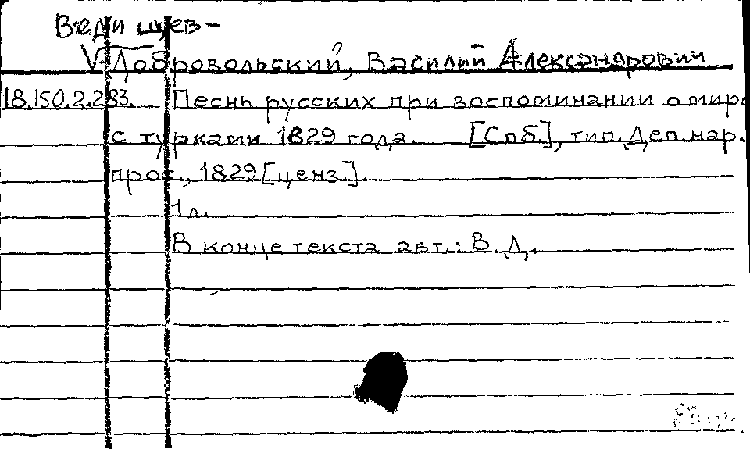 Ведищев-
V Добровольский, Василий Александрович
18.150.2.283. Песнь русских при воспоминании о мире
с турками 1829 года. [Спб.], тип. Деп. нар.
прос., 1829 [ценз.].
1 л.
В конце текста авт.: В. Д.